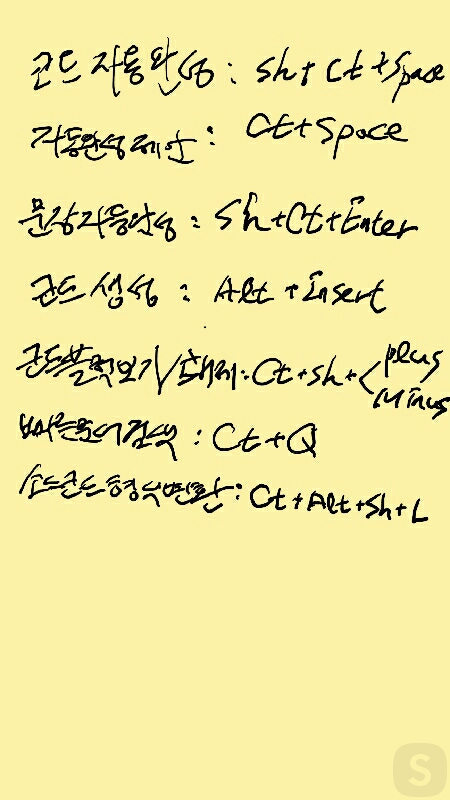 코드 자동완성 : Sh+Ct+Space
자동완성제안 : Ct+Space
문장자동완성 : Sh+Ct+Enter
코드 생성 : Alt+Insert
코드블럭보기/해제 : Ct+Sh+< plus
minus
빠른문서검색 : Ct+Q
소스코드형식변환 : Ct+Alt+Sh+L
S